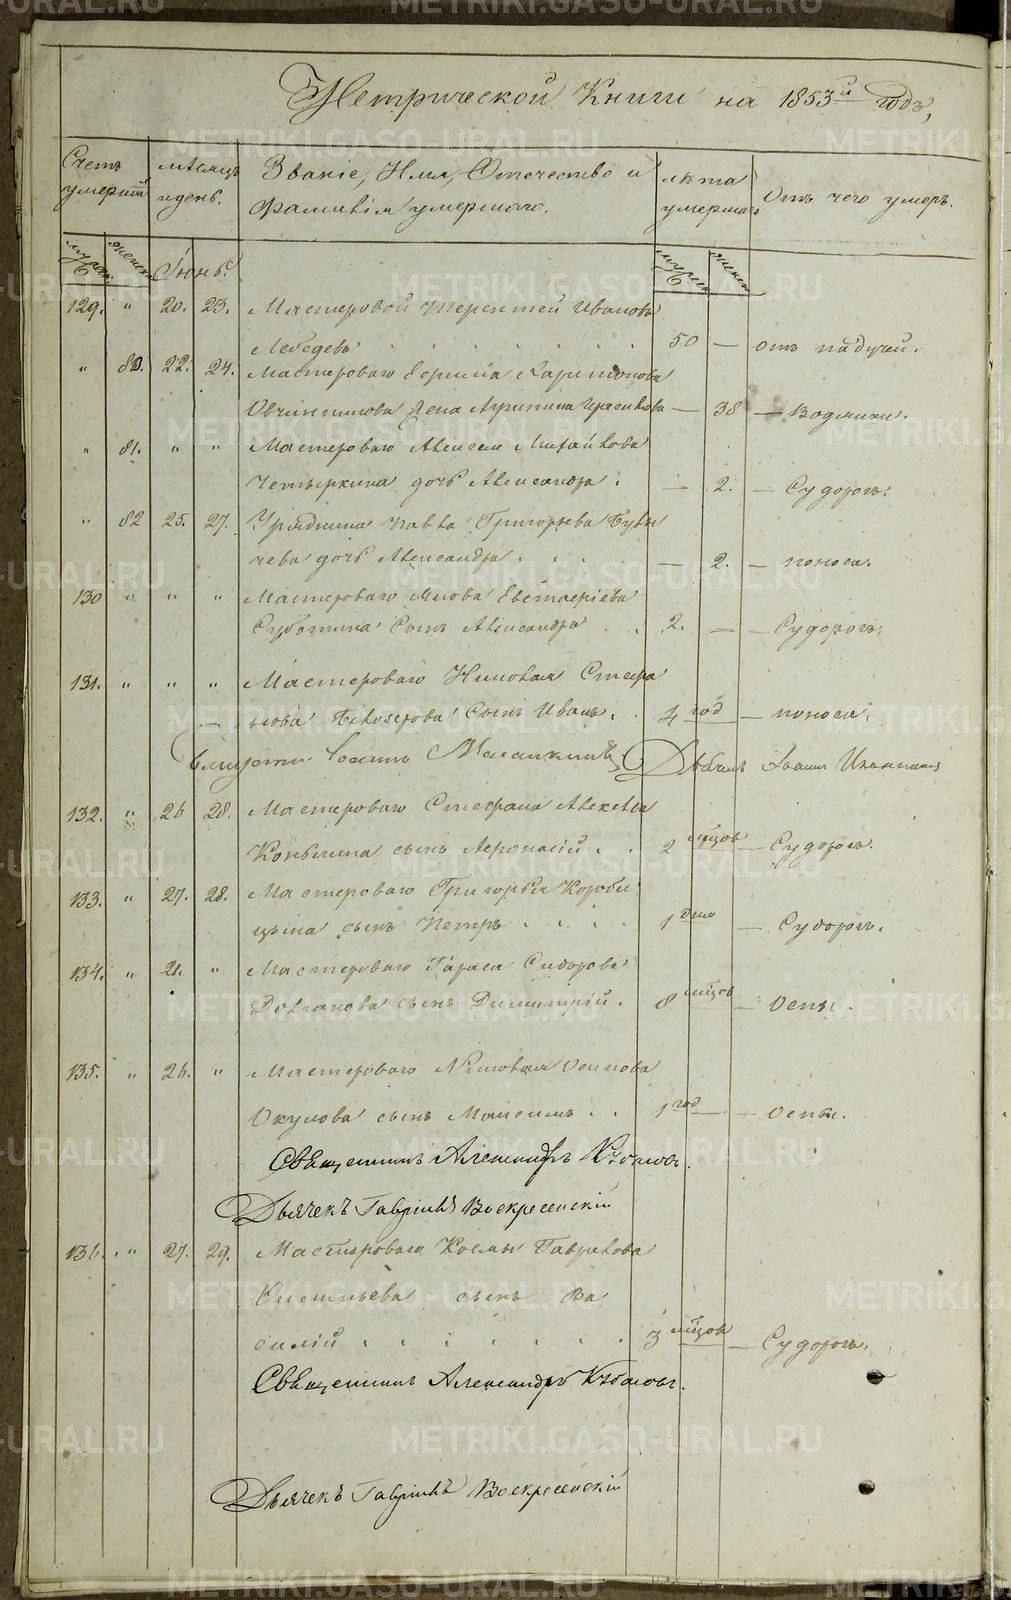 Метрической Книги на 1853й годъ,
Счетъ умершихъ
мѣсяцъ и день.
Званіе, Имя, Отечество и фамилія умершаго.
лѣта умершаго
Отъ чего умеръ.
мужеск.
женск.
Іюнь.
мужеск
женск
129. " 20. 23. Мастеровой Терентей Ивановъ
Лебедевъ . . . . . . . 50 — отъ падучей.
" 80. 22. 24. Мастероваго Ефима Харитонова
Овчинникова жена Агрипина Герасимова — 38 — Водянки.
" 81. " " Мастероваго Алексея Михайлова
Четыркина дочь Александра . — 2. — Судорогъ.
" 82 25. 27. Урядника Павла Григорьева
чева дочь Александра . . . — 2. — поноса.
130 " " " Мастероваго Якова Евстафіева
Суботина Сынъ Александръ . . 2. — — Судорогъ.
131. " " " Мастероваго Николая Стефа
нова Бѣлозерова Сынъ Иванъ. . 4 год — поноса.
132. " 26 28. Мастероваго Стефана Алексѣева
Копылова сынъ Афонасій . . 2 мѣцовъ — Судорогъ.
133. " 27. 28. Мастероваго Григорья Короби
цына сынъ Петръ . . . . 1 дня — Судорогъ.
134. " 21. " Мастероваго Тараса Сидорова
Долганова сынъ Димитрій . 8 мѣцовъ — Оспы.
135. " 26. " Мастероваго Николая Осипова
Окулова сынъ Максимъ . . 1 год — оспы.
Священникъ Александръ
Дьячекъ Гавріилъ Воскресенскій
136. " 27. 29. Мастероваго Космы Гаврилова
сынъ Ва
силій . . . . . . . 3 мѣцовъ — Судорогъ.
Священникъ Александръ
Дьячекъ Гавріилъ Воскресенскій
METRIKI.GASO-URAL.RU